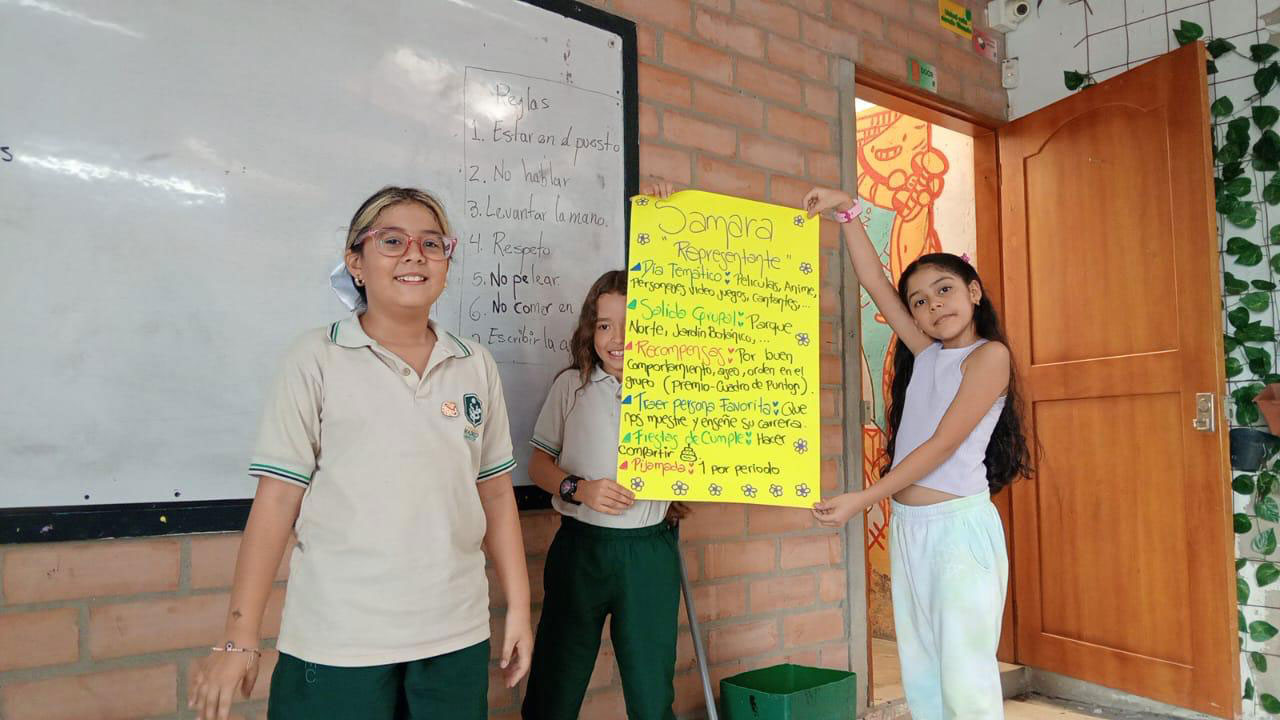 Reglas
1. Estar en el puesto
2. No hablar
3. Levantar la mano.
4. Respeto
5. No pelear.
6. No comer en
Escribir la
Samara
"Representante"
Día Temático: Películas, Anime,
Personajes video juegos, Cantantes,...
Salida Grupal: Parque
Norte, Jardín Botánico, ...
Recompensas: Por buen
comportamiento, aseo, orden en el
grupo (Premio-Cuadro de Puntos).
Traer persona Favorita: Que
nos muestre y enseñe su carrera.
Fiestas de Cumple: Hacer
compartir
Pijamada: 1 por periodo